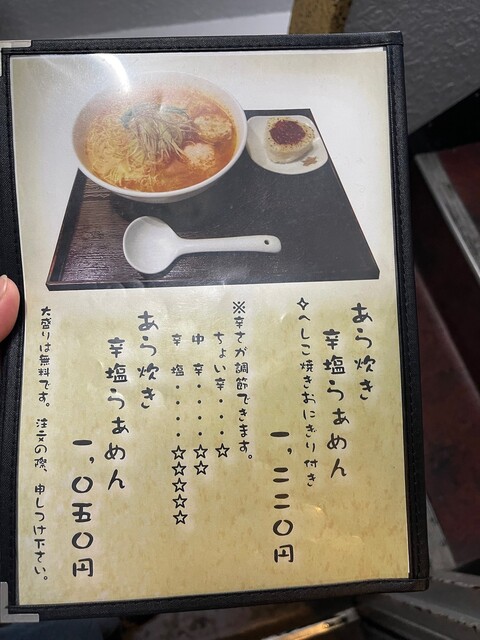 あら炊き
辛塩らぁめん
✧へしこ焼きおにぎり付き
一,二二〇円
※辛さが調節できます。
ちょい辛・・・☆
中 辛・・・・☆☆
辛 塩・・・・☆☆☆☆☆
あら炊き
辛塩らぁめん
一,〇五〇円
大盛りは無料です。 注文の際、申しつけ下さい。